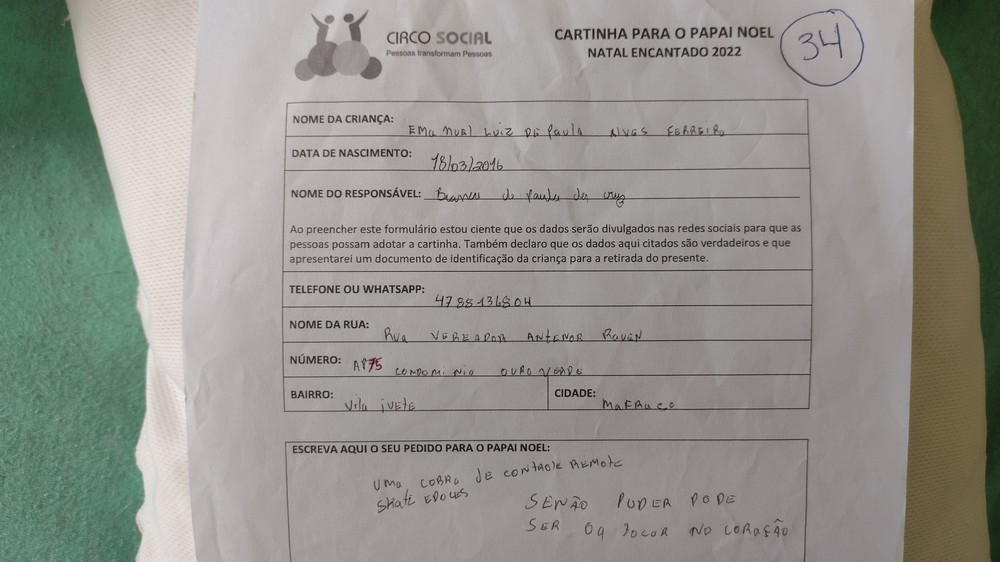 CIRCO SOCIAL
Pessoas transformam Pessoas
CARTINHA PARA O PAPAI NOEL
NATAL ENCANTADO 2022
34
NOME DA CRIANÇA: EMANUEL LUIZ DE PAULA ALVES FERREIRO
DATA DE NASCIMENTO: 18/03/2016
NOME DO RESPONSÁVEL: Bianca de Paula da cruz
Ao preencher este formulário estou ciente que os dados serão divulgados nas redes sociais para que as
pessoas possam adotar a cartinha. Também declaro que os dados aqui citados são verdadeiros e que
apresentarei um documento de identificação da criança para a retirada do presente.
TELEFONE OU WHATSAPP: 4788136804
NOME DA RUA: Rua VEREADOR ANTENOR
NÚMERO: AP75 CONDOMINIO OURO VERDE
BAIRRO: Vila iVETE
CIDADE:
ESCREVA AQUI O SEU PEDIDO PARA O PAPAI NOEL:
UMA COBRA DE CONTROLE REMOTE
SKATE
SENÃO PUDER PODE
SER NO CORAÇÃO